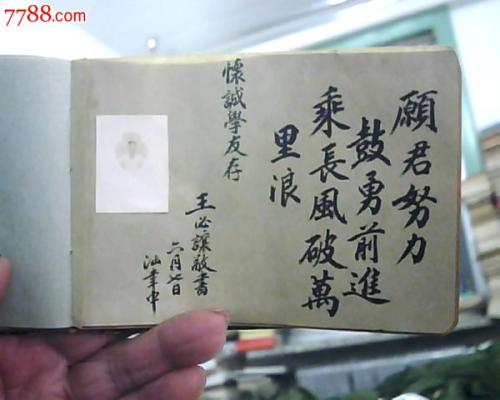 7788.com
願君努力
鼓勇前進
乘長風破萬
里浪
懷誠學友存
王必讓敬書
六月七日
汕華中